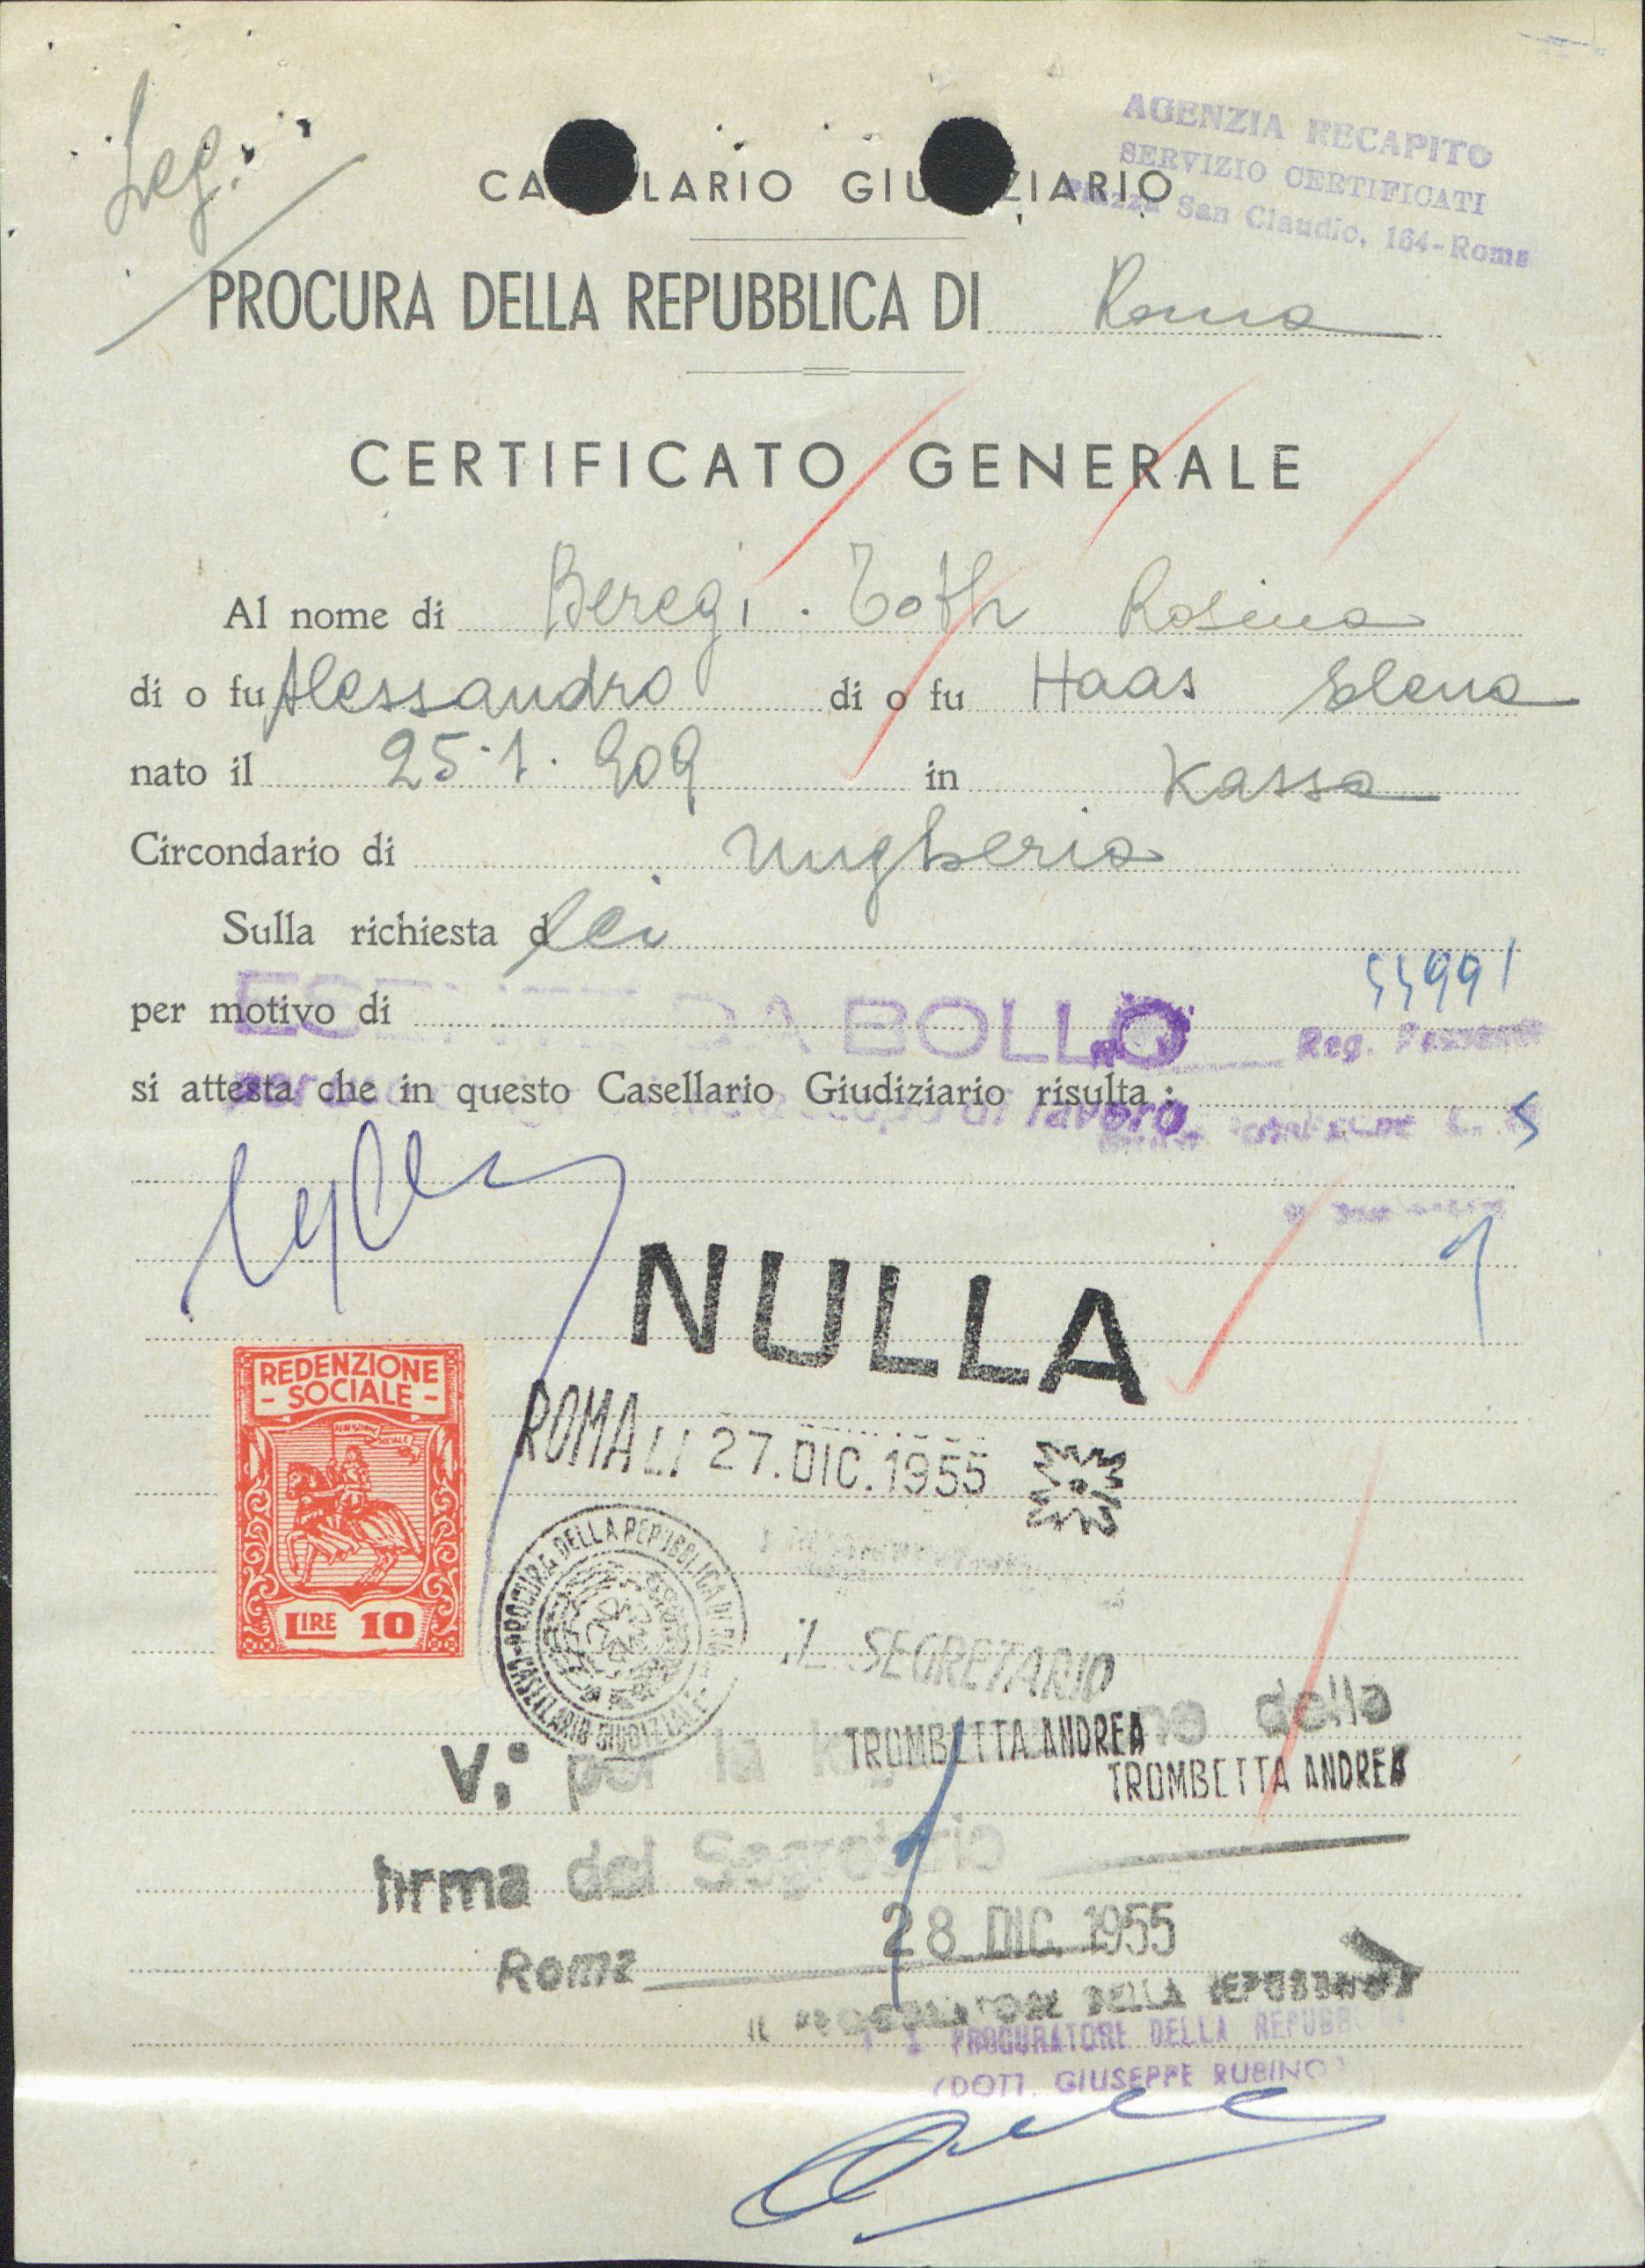 Leg.
AGENZIA RECAPITO
SERVIZIO CERTIFICATI
Piazza San Claudio, 164-Roma
CA LARIO GIU ZIARIO
PROCURA DELLA REPUBBLICA DI Roma
CERTIFICATO GENERALE
Al nome di Beregi . Toth Rosina
di o fu Alessandro di o fu Haas Elena
nato il 25.1.909 in Kassa
Circondario di Ungheria
Sulla richiesta d lei
55991
per motivo di
DA BOLLO
Reg.
si attesta che in questo Casellario Giudiziario risulta :
per scopo di lavoro
L. 5
1
NULLA
REDENZIONE
- SOCIALE -
LIRE 10
ROMA LI 27.DIC.1955
PROCURA DELLA REPUBBLICA DI
CASELLARIO GIUDIZIALE
IL SEGRETARIO
TROMBETTA ANDREA
V.° per la della
TROMBETTA ANDREA
firma del Segretario
28 DIC. 1955
Roma
IL PROCURATORE DELLA REPUBBLICA
PROCURATORE DELLA REPUBB
(DOTT. GIUSEPPE RUBINO)